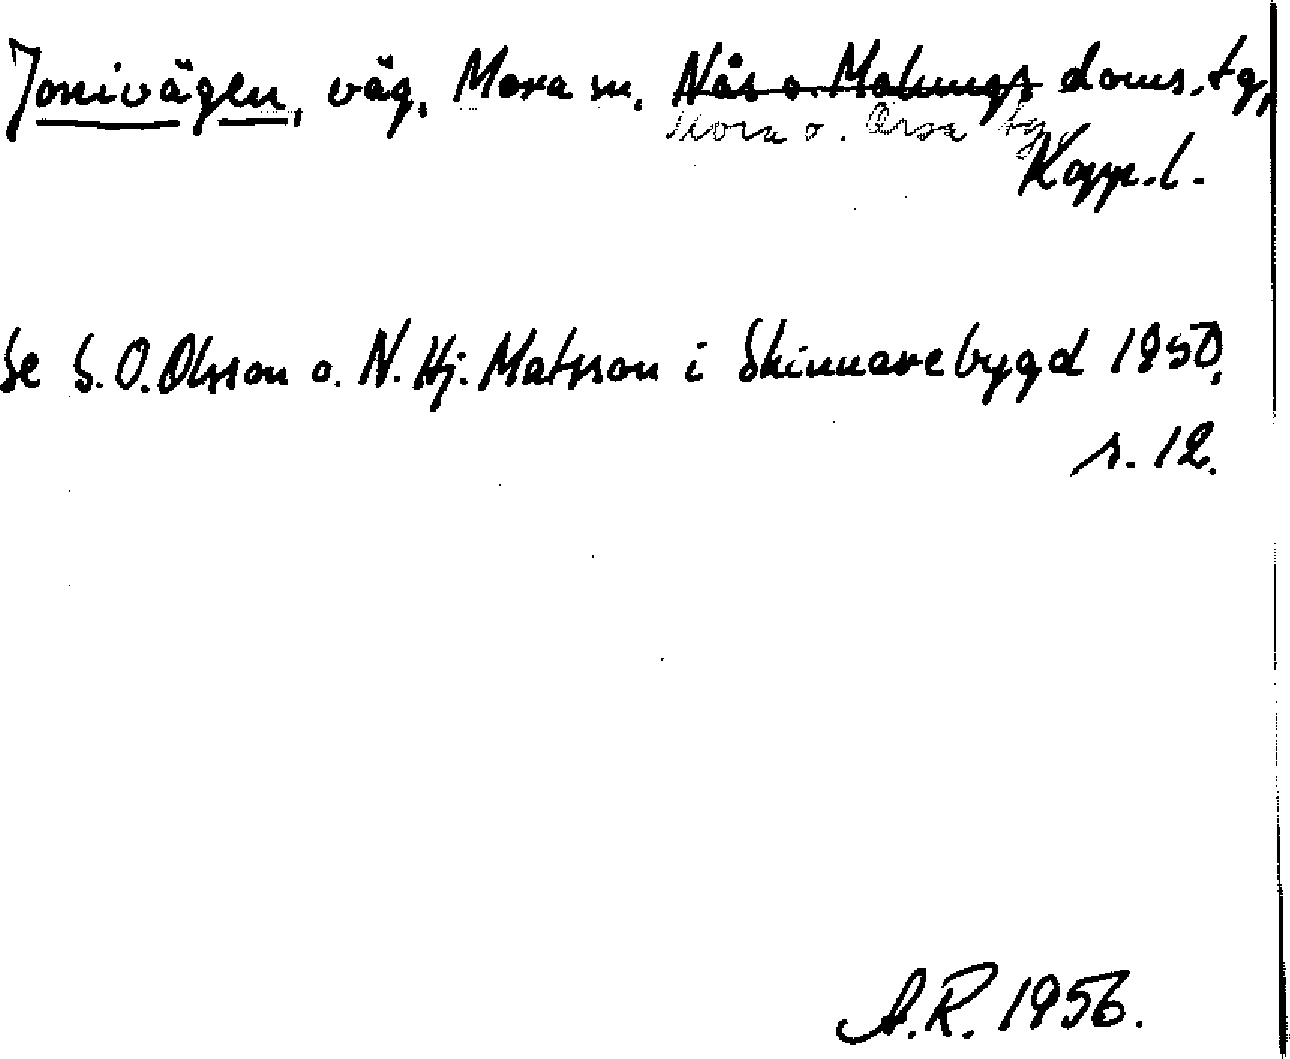 Jonivägen, väg, Mora sn, Nås o. Malungs doms. tg,
Mora o. Orsa tg
Kopp. l.
Se S. O. Olsson o. N. Hj. Matsson i Skinnarebygd 1950,
s. 12.
A. R. 1956.